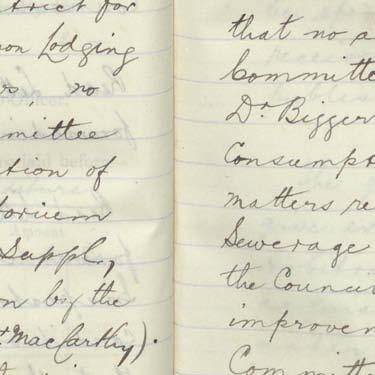 trict for
on Lodging
rs, no
mmittee
tion of
torium
Suppl,
on by the
r MacCarthy).
that no a
Committe
Dr Bigger
Consumpt
matters re
Sewerage
the Counci
improvem
Committ